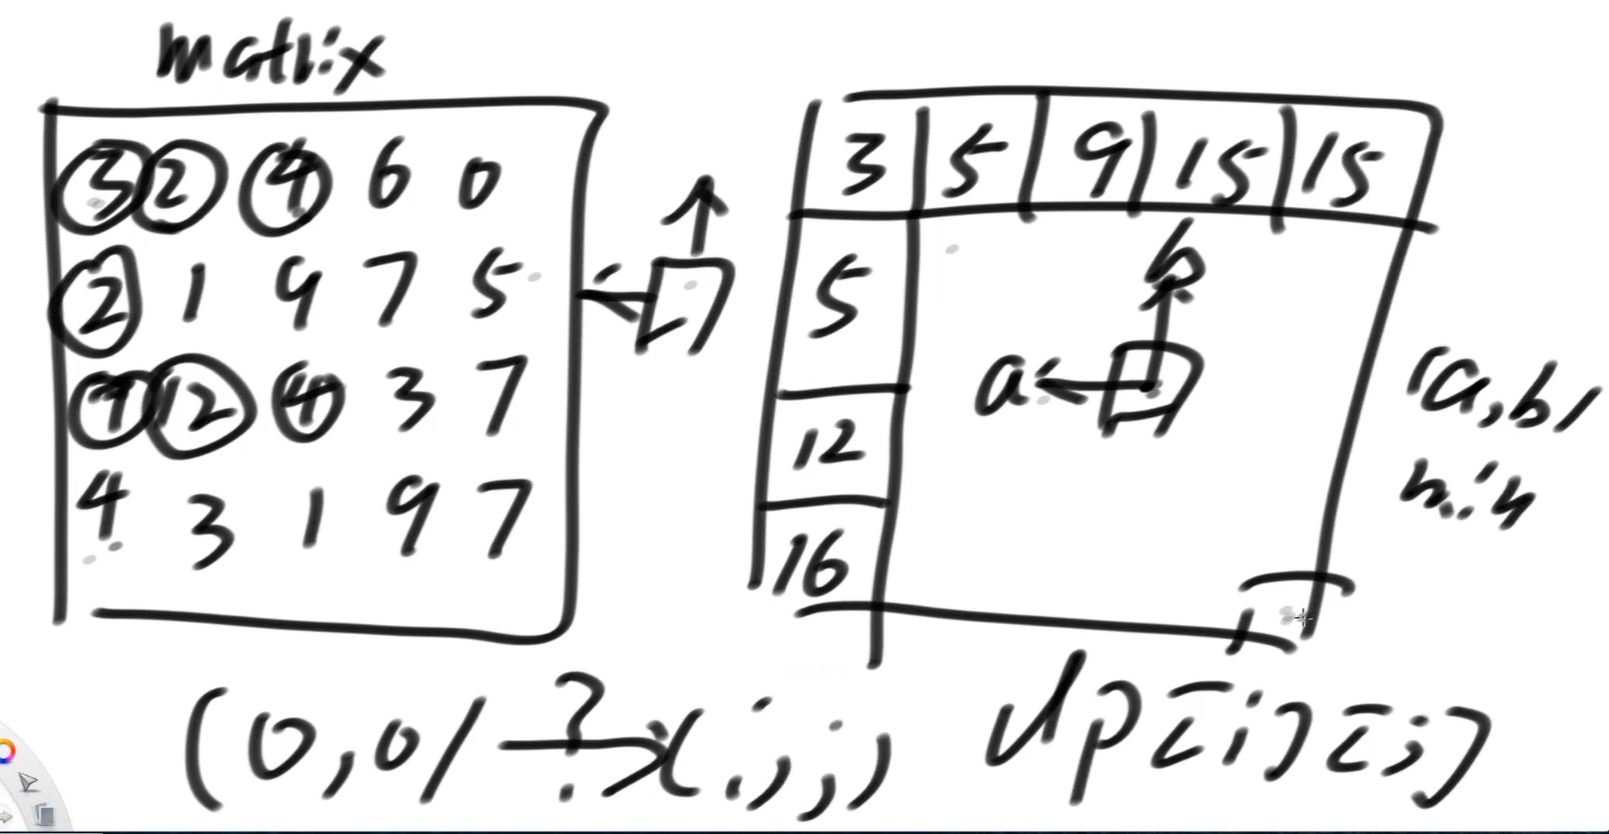 matrix
3 2 4 6 0
2 1 9 7 5
7 12 4 3 7
4 3 1 9 7
3 5 9 15 15
5
12
16
b
a
(a,b)
min
(0,0) ? (i,j)
dp[i][j]